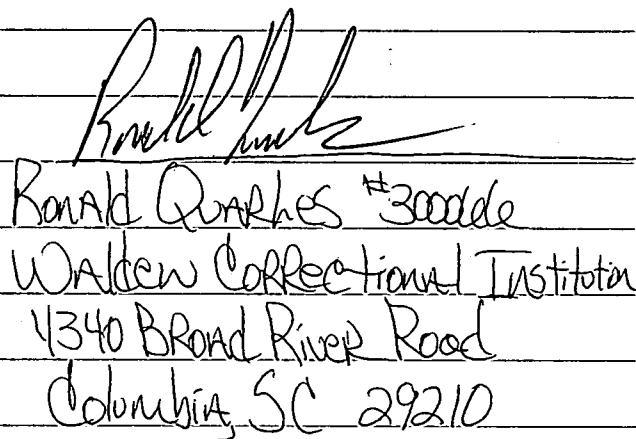 Ronald Quarles
Ronald Quarles #300066
Walden Correctional Institution
4340 Broad River Road
Columbia, SC 29210